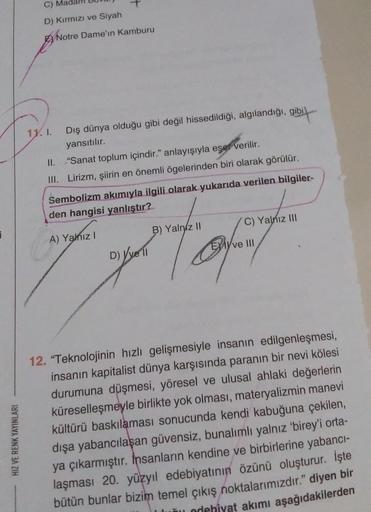 D) Kırmızı ve Siyah
E) Notre Dame'ın Kamburu
11. I. Dış dünya olduğu gibi değil hissedildiği, algılandığı, gibi
yansıtılır.
II. "Sanat toplum içindir." anlayışıyla eser verilir.
III. Lirizm, şiirin en önemli ögelerinden biri olarak görülür.
Sembolizm akımıyla ilgili olarak yukarıda verilen bilgiler-
den hangisi yanlıştır?
A) Yalnız I
B) Yalnız II
C) Yalnız III
D) I ve II
E) II ve III
12. "Teknolojinin hızlı gelişmesiyle insanın edilgenleşmesi,
insanın kapitalist dünya karşısında paranın bir nevi kölesi
durumuna düşmesi, yöresel ve ulusal ahlaki değerlerin
küreselleşmeyle birlikte yok olması, materyalizmin manevi
kültürü baskılaması sonucunda kendi kabuğuna çekilen,
dışa yabancılaşan güvensiz, bunalımlı yalnız 'birey'i orta-
ya çıkarmıştır. İnsanların kendine ve birbirlerine yabancı-
laşması 20. yüzyıl edebiyatının özünü oluşturur. İşte
bütün bunlar bizim temel çıkış noktalarımızdır." diyen bir
edebiyat akımı aşağıdakilerden
HIZ VE RENK YAYINLARI